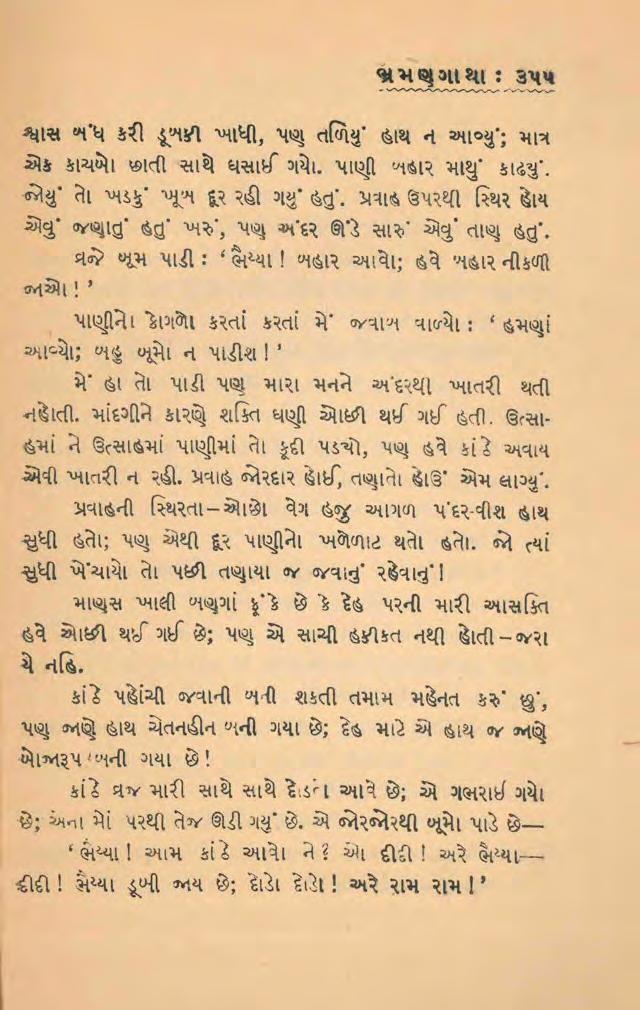 ભ્રમણગાથા : ૩૫૫
શ્વાસ બંધ કરી ડૂબકી ખાધી, પણ તળિયું હાથ ન આવ્યું; માત્ર
એક કાચબો છાતી સાથે ઘસાઈ ગયો. પાણી બહાર માથું કાઢ્યું.
જોયું તો ખડકું ખૂબ દૂર રહી ગયું હતું. પ્રવાહ ઉપરથી સ્થિર હોય
એવું જણાતું હતું ખરું, પણ અંદર ઊંડે સારું એવું તાણ હતું.
વ્રજે બૂમ પાડી : ‘ ભૈય્યા ! બહાર આવો; હવે બહાર નીકળી
જાઓ ! ’
પાણીનો કોગળો કરતાં કરતાં મેં જવાબ વાળ્યો : ‘ હમણાં
આવ્યો; બહુ બૂમો ન પાડીશ ! ’
મેં હા તો પાડી પણ મારા મનને અંદરથી ખાતરી થતી
નહોતી. માંદગીને કારણે શક્તિ ઘણી ઓછી થઈ ગઈ હતી. ઉત્સા-
હમાં ને ઉત્સાહમાં પાણીમાં તો કૂદી પડચો, પણ હવે કાંઠે અવાય
એવી ખાતરી ન રહી. પ્રવાહ જોરદાર હોઈ, તણાતો હોઉં એમ લાગ્યું.
પ્રવાહની સ્થિરતા – ઓછો વેગ હજુ આગળ પંદર-વીશ હાથ
સુધી હતો; પણ એથી દૂર પાણીનો ખળેળાટ થતો હતો. જો ત્યાં
સુધી ખેંચાયો તો પછી તણાયા જ જવાનું રહેવાનું !
માણસ ખાલી બણગાં ફૂંકે છે કે દેહ પરની મારી આસક્તિ
હવે ઓછી થઈ ગઈ છે; પણ એ સાચી હકીકત નથી હોતી – જરા
યે નહિ.
કાંઠે પહોંચી જવાની બની શકતી તમામ મહેનત કરું છું,
પણ જાણે હાથ ચેતનહીન બની ગયા છે; દેહ માટે એ હાથ જ જાણે
બોજારૂપ બની ગયા છે !
કાંઠે વ્રજ મારી સાથે સાથે દોડતો આવે છે; એ ગભરાઈ ગયો
છે; એના મોં પરથી તેજ ઊડી ગયું છે. એ જોરજોરથી બૂમો પાડે છે—
‘ ભૈય્યા ! આમ કાંઠે આવો ને ? ઓ દીદી ! અરે ભૈય્યા—
દીદી ! ભૈય્યા ડૂબી જાય છે; દોડો દોડો ! અરે રામ રામ ! ’